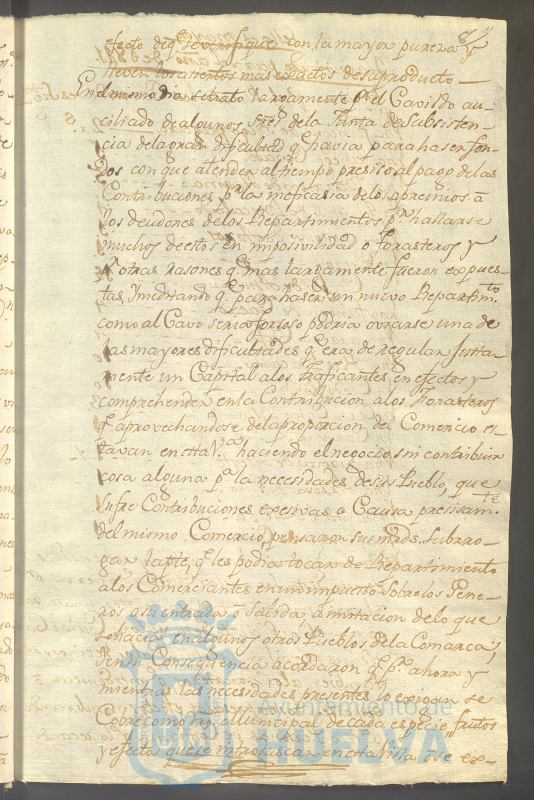 efecto de q.e se verifique con la mayor pureza y
lleven los asientos mas exactos de su producto
En el mismo dia se trato largamente p.r el Cavildo au-
ciliado de algunos Sres de la Junta de Subsisten-
cia de la gran dificultad q.e havia para haser fon-
dos con que atender al tiempo presiso al pago de las
Contribuciones p.r la ineficasia de los apremios á
los deudores de los Repartimientos p.r hallarse
muchos de estos en imposivilidad o forasteros y
p.r otras rasones q.e mas largamente fueron expues-
tas, y meditando q.e para haser un nuevo Repartim.to
como al Cavo seria forsoso podria oviarse una de
las mayores dificultades q.e era de regular justa-
mente un Capital a los traficantes en efectos y
comprehender en la Contribucion a los Forasteros
q.e aprovechandose de la proporcion del Comercio es-
tavan en esta V.a haciendo el negocio sin contribuir
cosa alguna p.a las necesidades de su Pueblo, que
sufre Contribuciones exesivas a Causa presisam.te
del mismo Comercio, pensaron sus mrds. Subrro-
gar la p.te q.e les podia tocar de Repartimiento
a los Comerciantes en un impuesto sobre los Gene-
ros a su entrada o salida, a imitacion de lo que
se hacia en algunos otros Pueblos de la Comarca,
y en su Consequencia acordaron q.e p.r ahora y
mientras las necesidades presentes lo exigen se
Cobre como dro. Municipal de cada especie, frutos
y efectos que se introduscan en esta Villa o se ex-
Ayuntamiento de
HUELVA